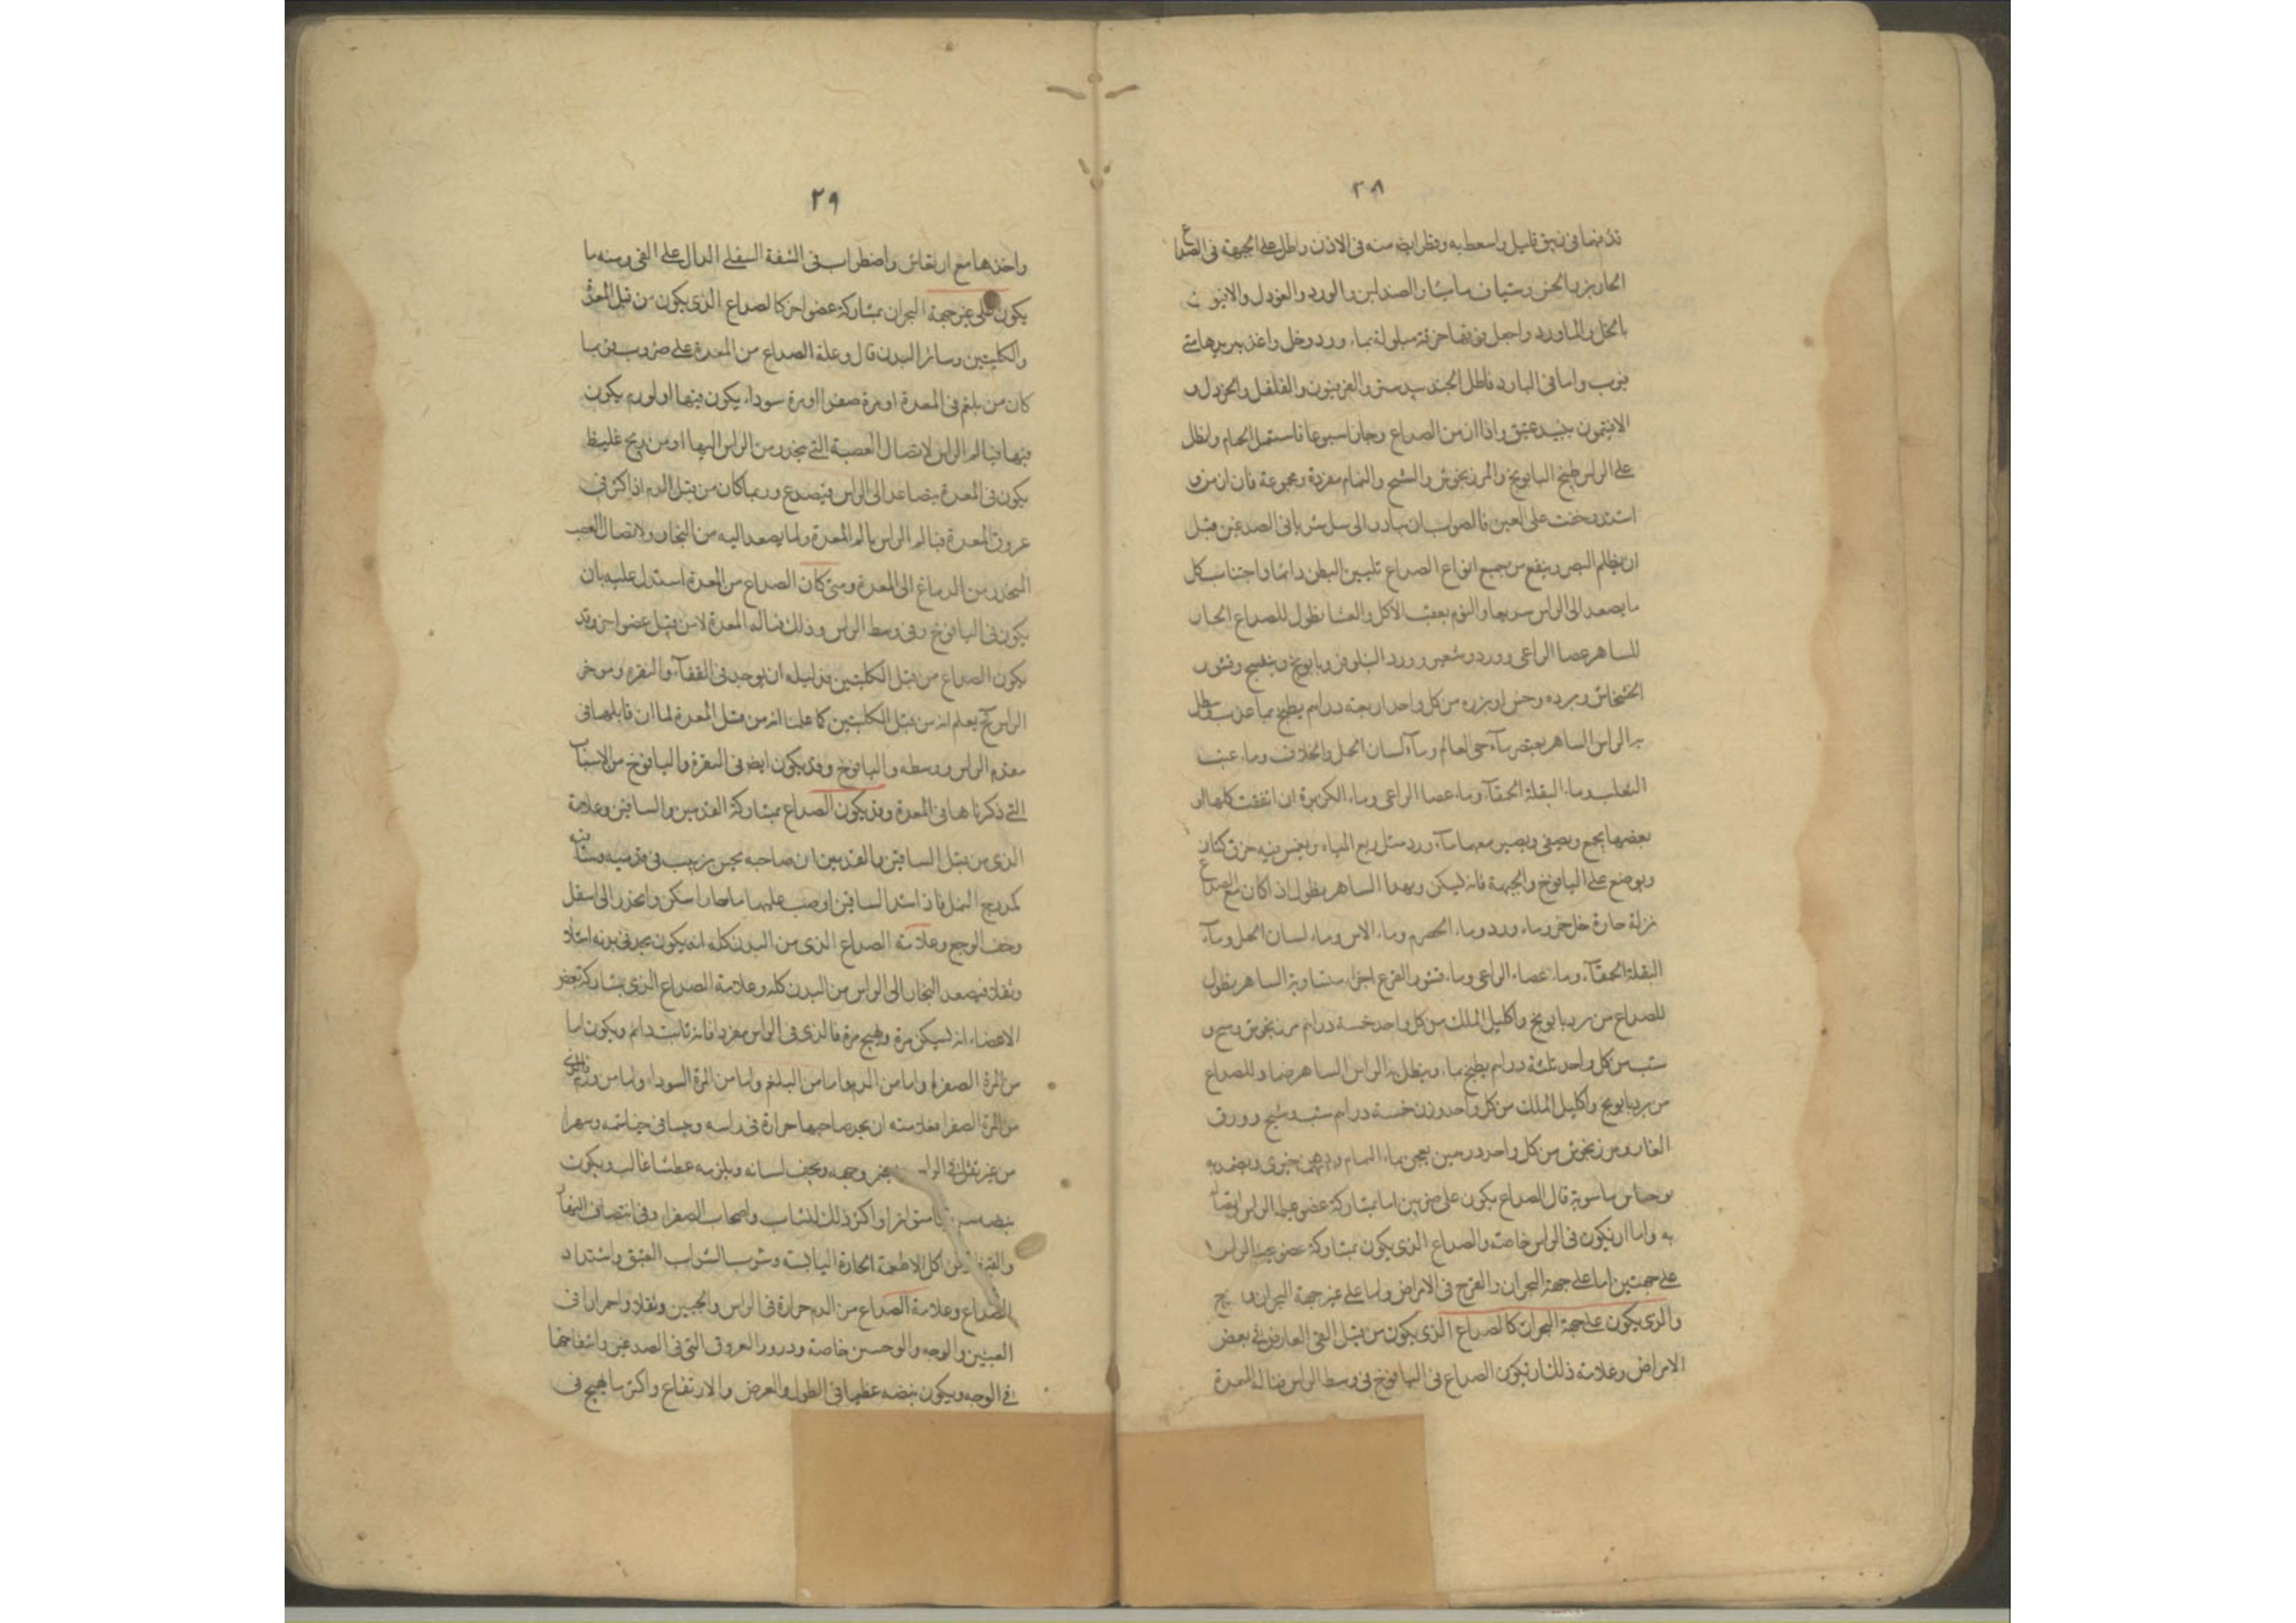 ٢٨
قليل واسعط به وقطر ايضا منه فى الاذن واطل على الجبهة فى الصداع
الحار وشياف ماميثا والصندلين والورد والافيون
بالخل والماورد واجعل فوقها خرقة مبلولة بماء ورد وخل
واما فى البارد فاطل الجندبيدستر والفربيون والفلفل والخردل و
عتيق واذا ازمن الصداع وجاز اسبوعا فاستعمل الحمام ونطل
على الراس طبيخ البابونج والمرزنجوش والشيح والنمام مفردة ومجموعة فان ازمن و
اشتد وخفت على العين فالصواب ان تبادر الى سل شرياني الصدغين قبل
ان يظلم البصر وينفع من جميع انواع الصداع تليين البطن دائما واجتناب كل
ما يصعد الى الراس سريعا والنوم بعقب الاكل والعشا نطول للصداع الحار
للساهر عصا الراعى وورد وشعير وورد النيلوفر وبابونج وبنفسج وقشور
الخشخاش وبزره وخس او بزره من كل واحد اربعة دراهم يطبخ بماء عذب وينطل
به الراس الساهر يعتصر ماء حى العالم وماء لسان الحمل والخلاف وماء عنب
الثعلب وماء البقلة الحمقاء وماء عصا الراعى وماء الكزبرة ان اتفقت كلها او
بعضها يجمع ويصفى ويصير معها ماء ورد مثل ربع المياه ويغمس فيه خرق كتان
ويوضع على اليافوخ والجبهة فانه يسكن وبهذا الساهر نطول اذا كان مع الصداع
نزلة حارة خل خمر وماء ورد وماء الحصرم وماء الاس وماء لسان الحمل وماء
البقلة الحمقاء وماء عصاء الراعى وماء قشور القرع اجزاء متساوية الساهر نطول
للصداع من برد بابونج واكليل الملك من كل واحد خمسة دراهم مرزنجوش وشيح و
شبت من كل واحد ثلثة دراهم يطبخ بماء وينطل به الراس الساهر ضماد للصداع
من برد بابونج واكليل الملك من كل واحد وزن خمسة دراهم شبت وشيح وورق
الغار ومرزنجوش من كل واحد درهمين يعجن بماء النمام ودهن خيرى ويضمد به
يوحنا بن ماسويه قال الصداع يكون على ضربين اما بمشاركة عضو عليل الراس
به واما ان يكون فى الراس خاصة والصداع الذى يكون بمشاركة عضو يجب الراس
على جهتين اما على جهة البحران والفرج فى الامراض واما على غير جهة البحران
والذى يكون على جهة البحران كالصداع الذى يكون من قبل القى العارض فى بعض
الامراض وعلامة ذلك ان يكون الصداع فى اليافوخ فى وسط الراس قبالة المعدة
٢٩
واخذها مع ارتعاش واضطراب فى الشفة السفلى الدال على القى ومنه ما
يكون على غير جهة البحران بمشاركة عضو اخر كالصداع الذى يكون من قبل المعدة
والكليتين وسائر البدن قال وعلة الصداع من المعدة على ضروب فربما
كان من بلغم فى المعدة او مرة صفرا او مرة سوداء يكون فيها او لورم يكون
فيها فيالم الراس لاتصال العصبة التى تنحدر من الراس اليها او من ريح غليظ
يكون فى المعدة يتصاعد الى الراس فيصدع وربما كان من قبل الدم اذا كثر فى
عروق المعدة فيالم الراس بالم المعدة ولما يصعد اليه من البخار ولاتصال العصب
المنحدر من الدماغ الى المعدة ومتى كان الصداع من المعدة استدل عليه بان
يكون فى اليافوخ وفى وسط الراس وذلك قبالة المعدة لا من قبل عضو اخر وقد
يكون الصداع من قبل الكليتين فدليله ان يوجد فى القفاء والنقرة وموخر
الراس يعلم انه من قبل الكليتين كما علمنا انه من قبل المعدة لما ان قابلها فى
مقدم الراس ووسطه واليافوخ وقد يكون ايضا فى النقرة واليافوخ من الاسباب
التى ذكرناها فى المعدة وقد يكون الصداع بمشاركة القدمين والساقين وعلامة
الذى من قبل الساقين والقدمين ان صاحبه يحس بدبيب فى قدميه وساقيه
كدبيب النمل فاذا شد الساقين او صب عليهما ماء حارا سكن وانحدر الى اسفل
وخف الوجع وعلامة الصداع الذى من البدن كله انه يكون يجد فى بدنه امتلاء
وثقلا فيصعد البخار الى الراس من البدن كله وعلامة الصداع الذى بمشاركة بعض
الاعضاء انه يسكن مرة ويهيج مرة فالذى فى الراس مفردا فانه ثابت دائم ويكون اما
من المرة الصفراء واما من الدم واما من البلغم واما من المرة السوداء واما من ورم فالذى
من المرة الصفرا فعلامته ان يجد صاحبها حرارة فى راسه ويبسا فى خياشمه وسهرا
من غير ثقل فى الراس وجهه ويجف لسانه ويلزمه عطش غالب ويكون
نبضه واكثر ذلك للشباب واصحاب الصفرا وفى انتصاف النهار
والقيظ من اكل الاطعمة الحارة اليابسة وشرب الشراب العتيق واشتداد
الصداع وعلامة الصداع من الدم حرارة فى الراس والجبين وثقلا واحمرارا فى
العينين والوجه والوجنتين خاصة ودرور العروق التى فى الصدغين وانتفاخها
فى الوجه ويكون نبضه عظيما فى الطول والعرض والارتفاع واكثر ما يهيج فى